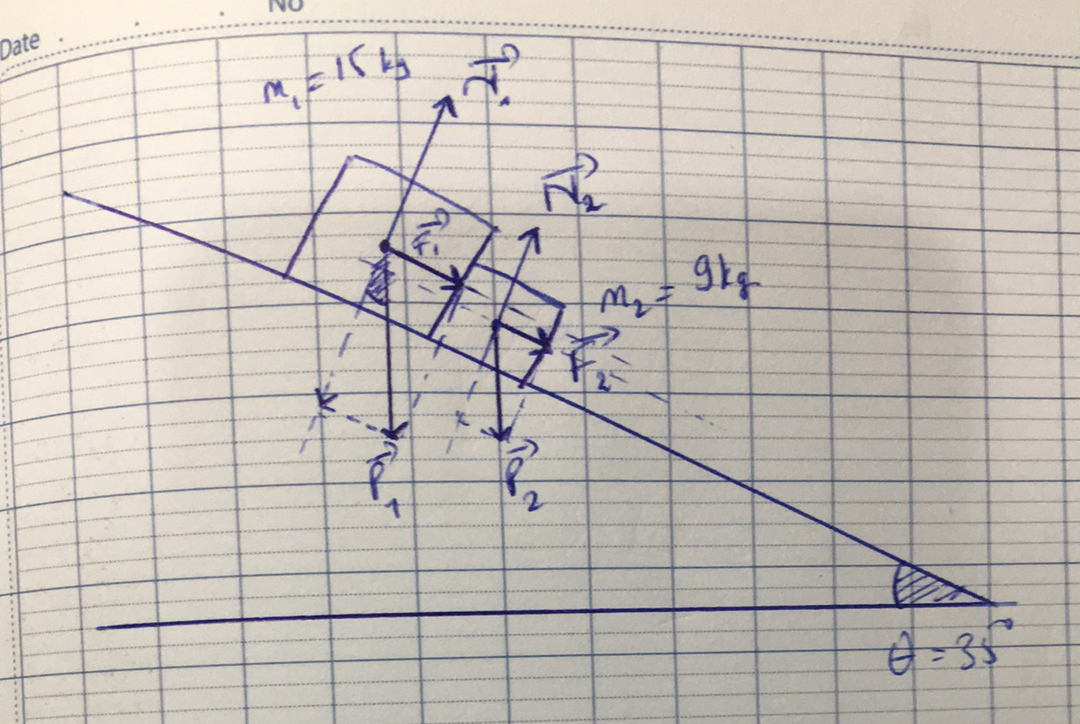 No
Date
m₁ = 15 kg
N₁
N₂
F₁
m₂ = 9kg
F₂
P₁
P₂
θ = 35°